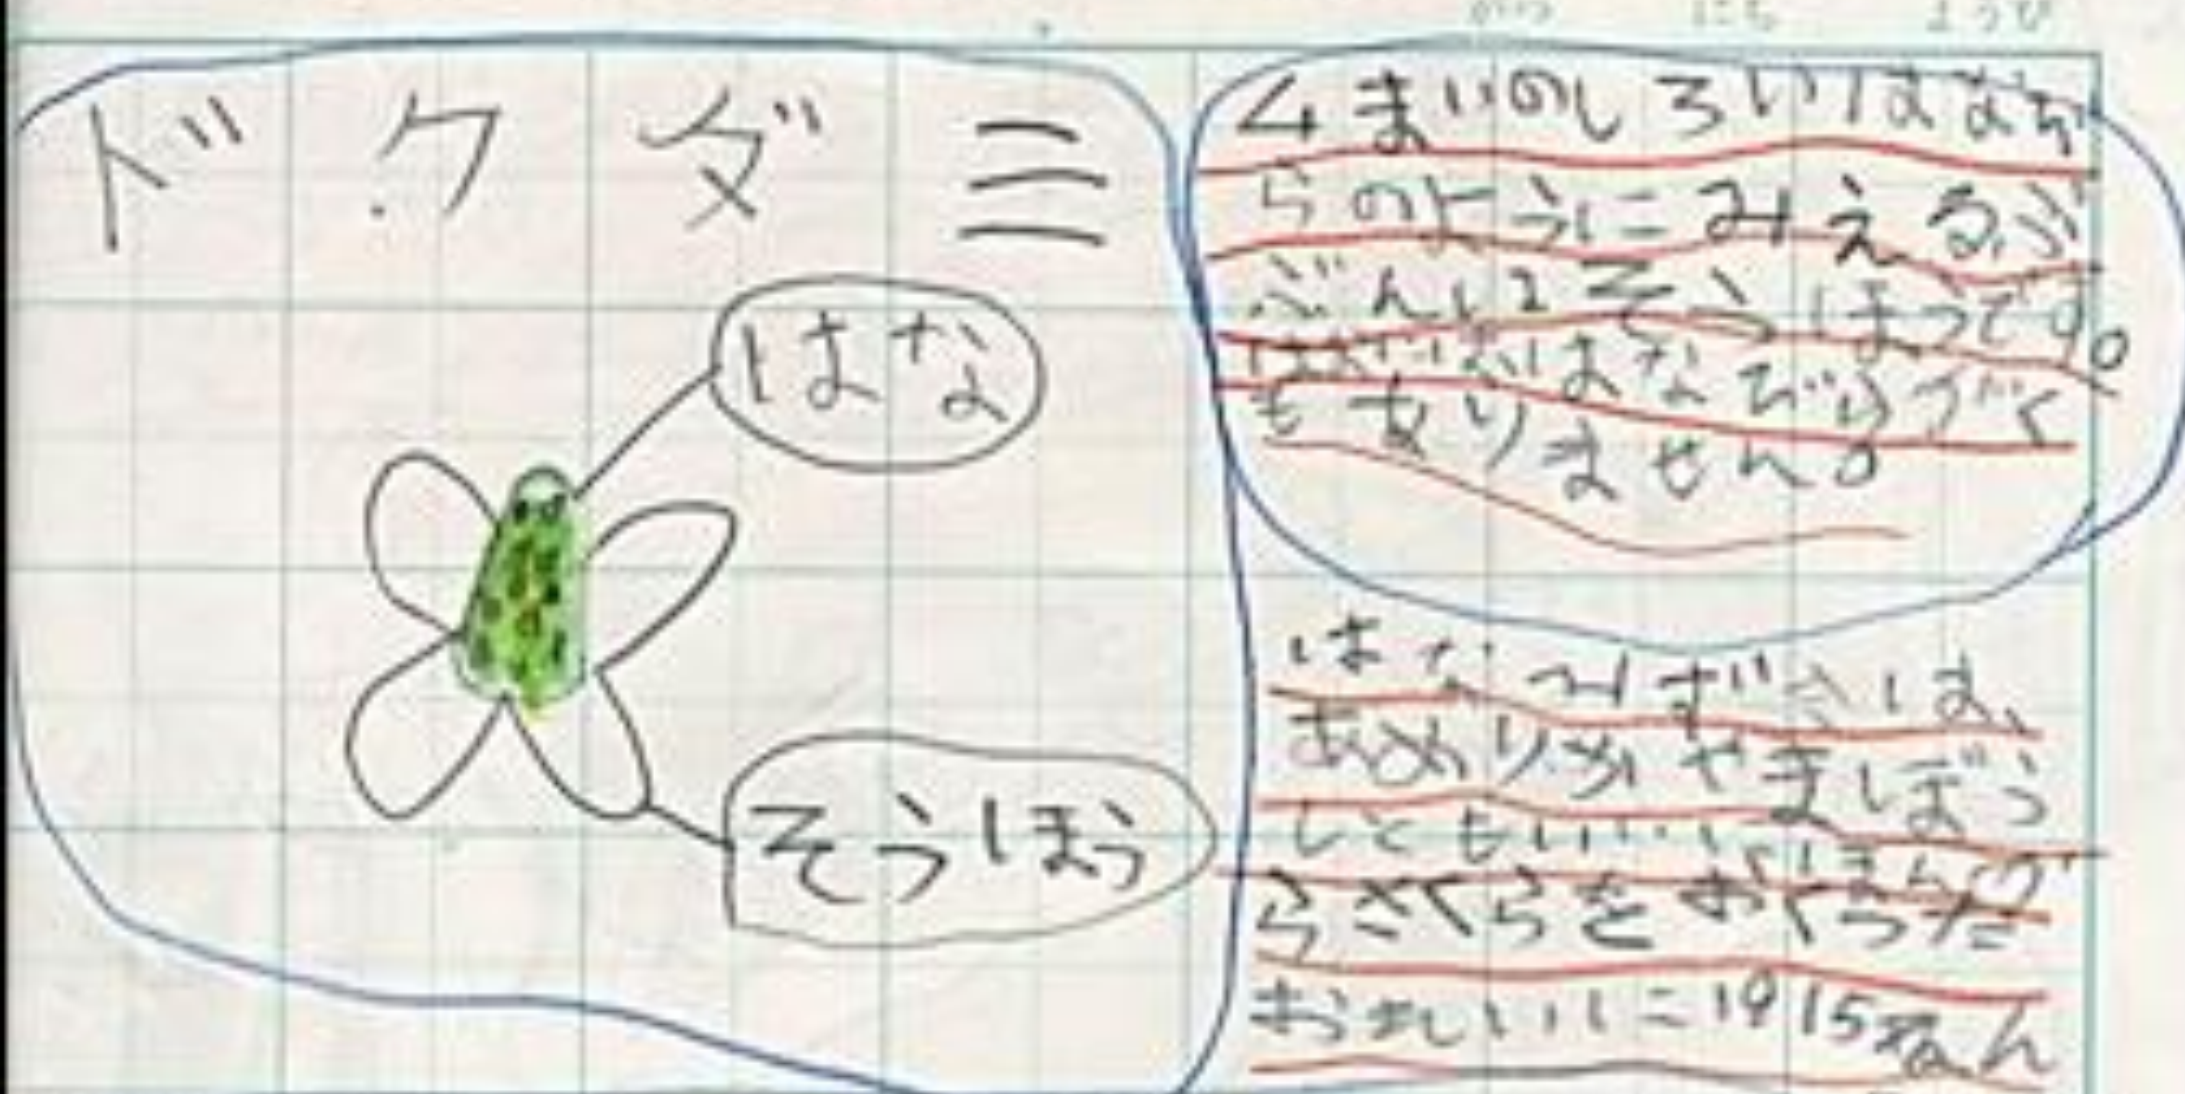 がつ にち ようび
ドクダミ
はな
そうほう
4まいのしろいはなび
らのようにみえるぶ
ぶんはそうほうです。
はなびらがく
もありません。
はなみずきは、
あめりかやまぼう
しともいい、にほんが
らさくらをおくった
おれいに1915ねん